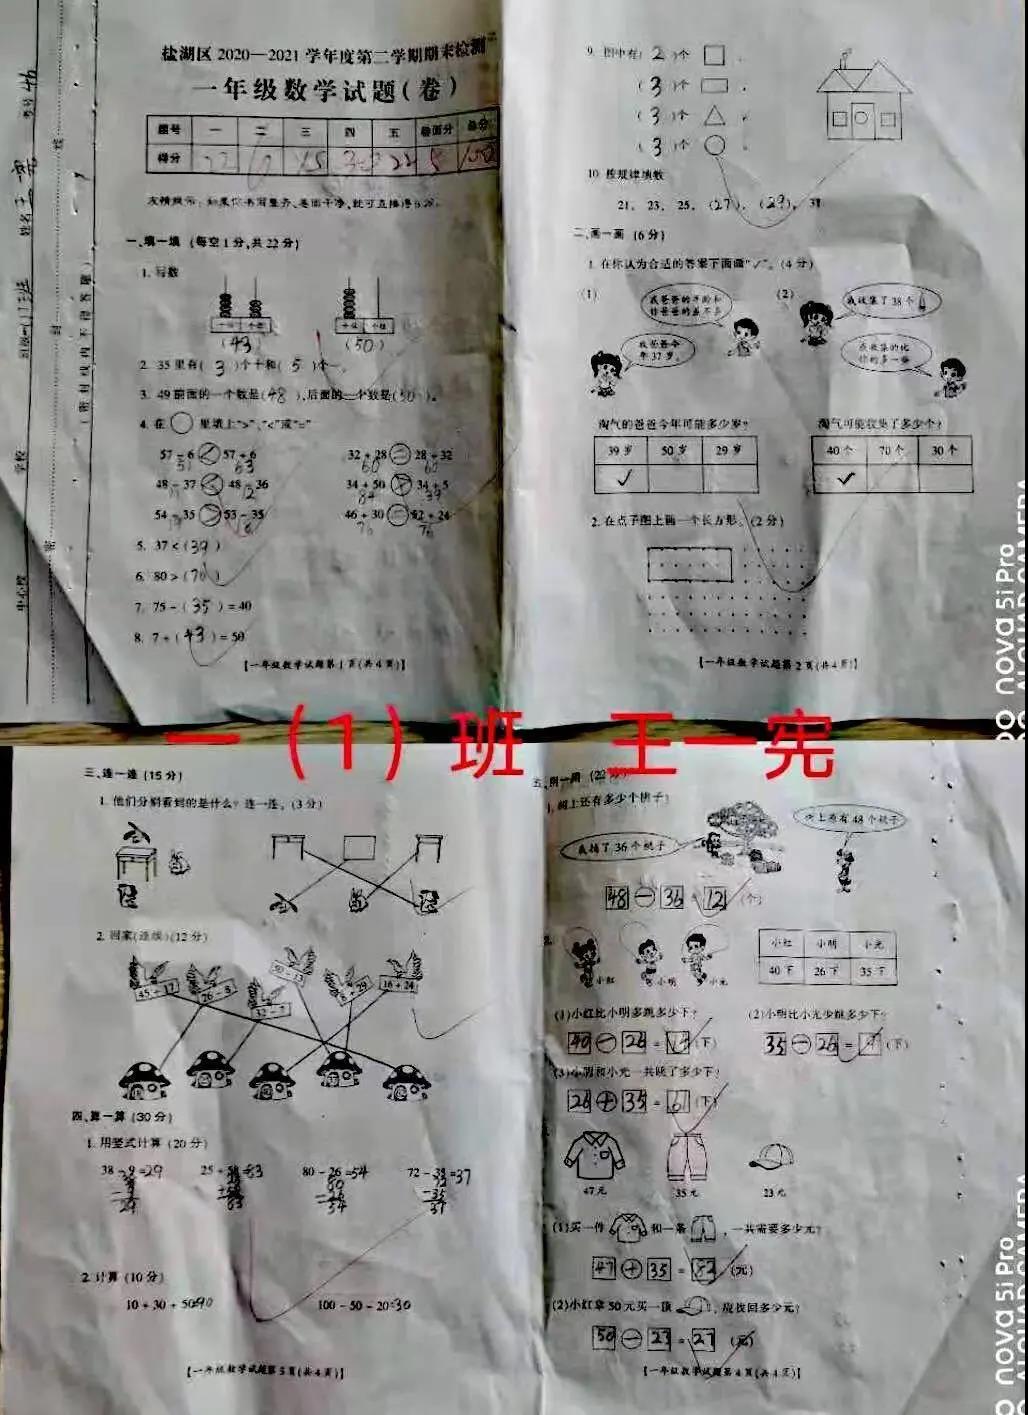 盐湖区 2020—2021 学年度第二学期期末检测
一年级数学试题(卷)
题号 一 二 三 四 五 卷面分 总分
得分 22 6 15 30 22 5 100
友情提示：如果你书写整齐、卷面干净，就可直接得5分。
一、填一填 (每空1分,共22分)
1. 写数
(43) (50)
2. 35里有(3)个十和(5)个一。
3. 49前面的一个数是(48),后面的一个数是(50)。
4. 在○里填上">"、"<"或"="
57-6<57+6 32+28=28+32
48-37<48-36 34+50>34+5
54-35>53-35 46+30=52+24
5. 37<(39)
6. 80>(70)
7. 75-(35)=40
8. 7+(43)=50
【一年级数学试题第1页(共4页)】
9. 图中有(2)个
(3)个
(3)个
(3)个
10. 按规律填数
21, 23, 25, (27), (29), 31
二、画一画 (6分)
1. 在你认为合适的答案下面画"✓"。(4分)
(1) (2)
我爸爸的年龄和你爸爸的差不多
我爸爸今年37岁。
我收集了38个
我收集的比你的多一些
淘气的爸爸今年可能多少岁?
39岁 50岁 29岁
✓
淘气可能收集了多少个?
40个 70个 30个
✓
2. 在点子图上画一个长方形。(2分)
【一年级数学试题第2页(共4页)】
一（1）班 王一宪
三、连一连 (15分)
1. 他们分别看到的是什么? 连一连。(3分)
2. 回家(连线)(12分)
45+17 26-8 32-7 50-13 8+29 16+24
四、算一算 (30分)
1. 用竖式计算 (20分)
38-9=29 80-26=54
2. 计算 (10分)
10+30+50=90 100-50-20=30
【一年级数学试题第3页(共4页)】
1. 树上还有多少个桃子?
我摘了36个桃子
树上原有48个桃子
48-36=12 (个)
2.
小红 小明 小光
小红 小明 小光
40下 26下 35下
(1)小红比小明多跳多少下?
40-26=14(下)
(2)小明比小光少跳多少下?
35-26=9(下)
(3)小明和小光一共跳了多少下?
26+35=61(下)
47元 35元 23元
(1)买一件 和一条 ，一共需要多少元?
47+35=82 (元)
(2)小红拿50元买一顶 ，应找回多少元?
50-23=27 (元)
【一年级数学试题第4页(共4页)】
nova 5i Pro
AI QUAD CAMERA
nova 5i Pro
AI QUAD CAMERA